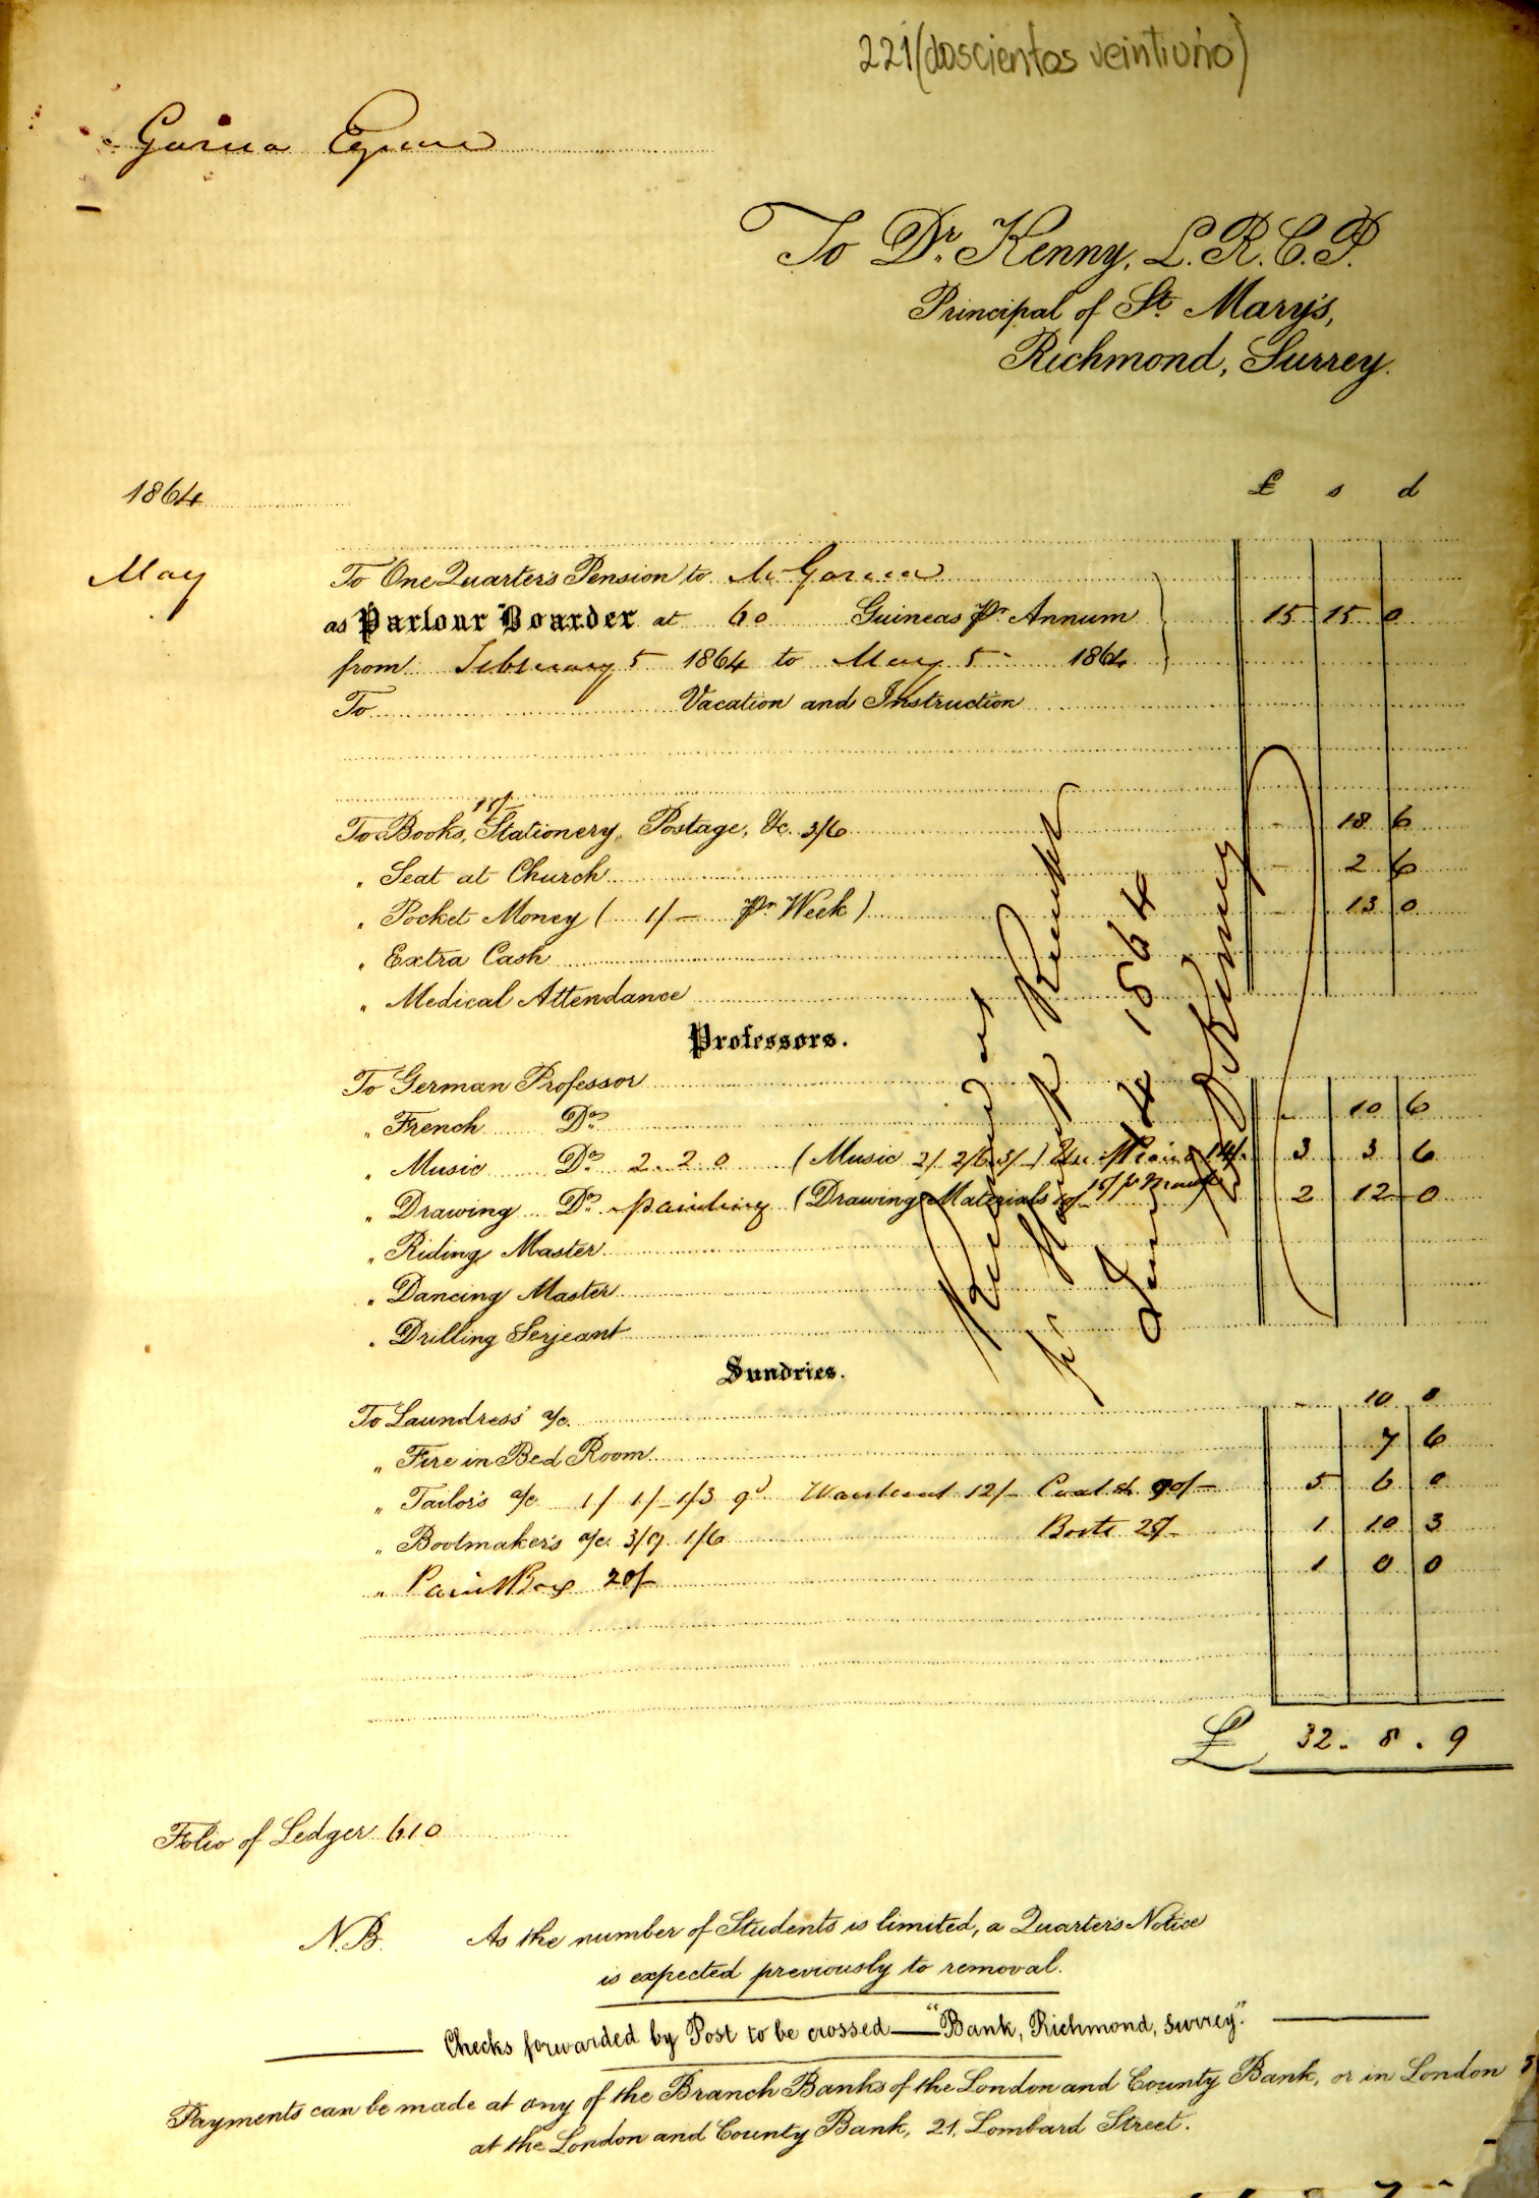 221 (doscientos veintiuno)
Esquire
To Dr. Kenny, L.R.C.P.
Principal of St. Mary's,
Richmond, Surrey.
1864
£ s d
May
To One Quarter's Pension to Mr Garcia
as Parlour Boarder at 60 Guineas Pr. Annum 15 15 0
from February 5 1864 to May 5 1864
To Vacation and Instruction
15/-
To Books, Stationery, Postage, &c. 3/6 - 18 6
" Seat at Church - 2 6
" Pocket Money ( 1/- Pr. Week ) - 13 0
" Extra Cash
" Medical Attendance
Professors.
To German Professor
" French Do. - 10 6
" Music Do. 2.2.0 (Music 2/- 2/6 3/-) Use of Piano 14/- 3 3 6
" Drawing Do. painting (Drawing Materials 10/-) 2 12 0
" Riding Master
" Dancing Master
" Drilling Serjeant
Sundries.
To Laundress' a/c. - 10 0
" Fire in Bed Room 7 6
" Tailor's a/c. 1/ 1/- 1/3 9d Waistcoat 12/- Coat & 90/- 5 6 0
" Bootmaker's a/c. 3/9 1/6 Boots 25/- 1 10 3
" Paint Box 20/- 1 0 0
£ 32 . 8 . 9
Received as
pr Bank Receipt
June 4 1864
W D Kenny
Folio of Ledger 610
N.B. As the number of Students is limited, a Quarter's Notice
is expected previously to removal.
Checks forwarded by Post to be crossed — "Bank, Richmond, Surrey."
Payments can be made at any of the Branch Banks of the London and County Bank, or in London
at the London and County Bank, 21, Lombard Street.